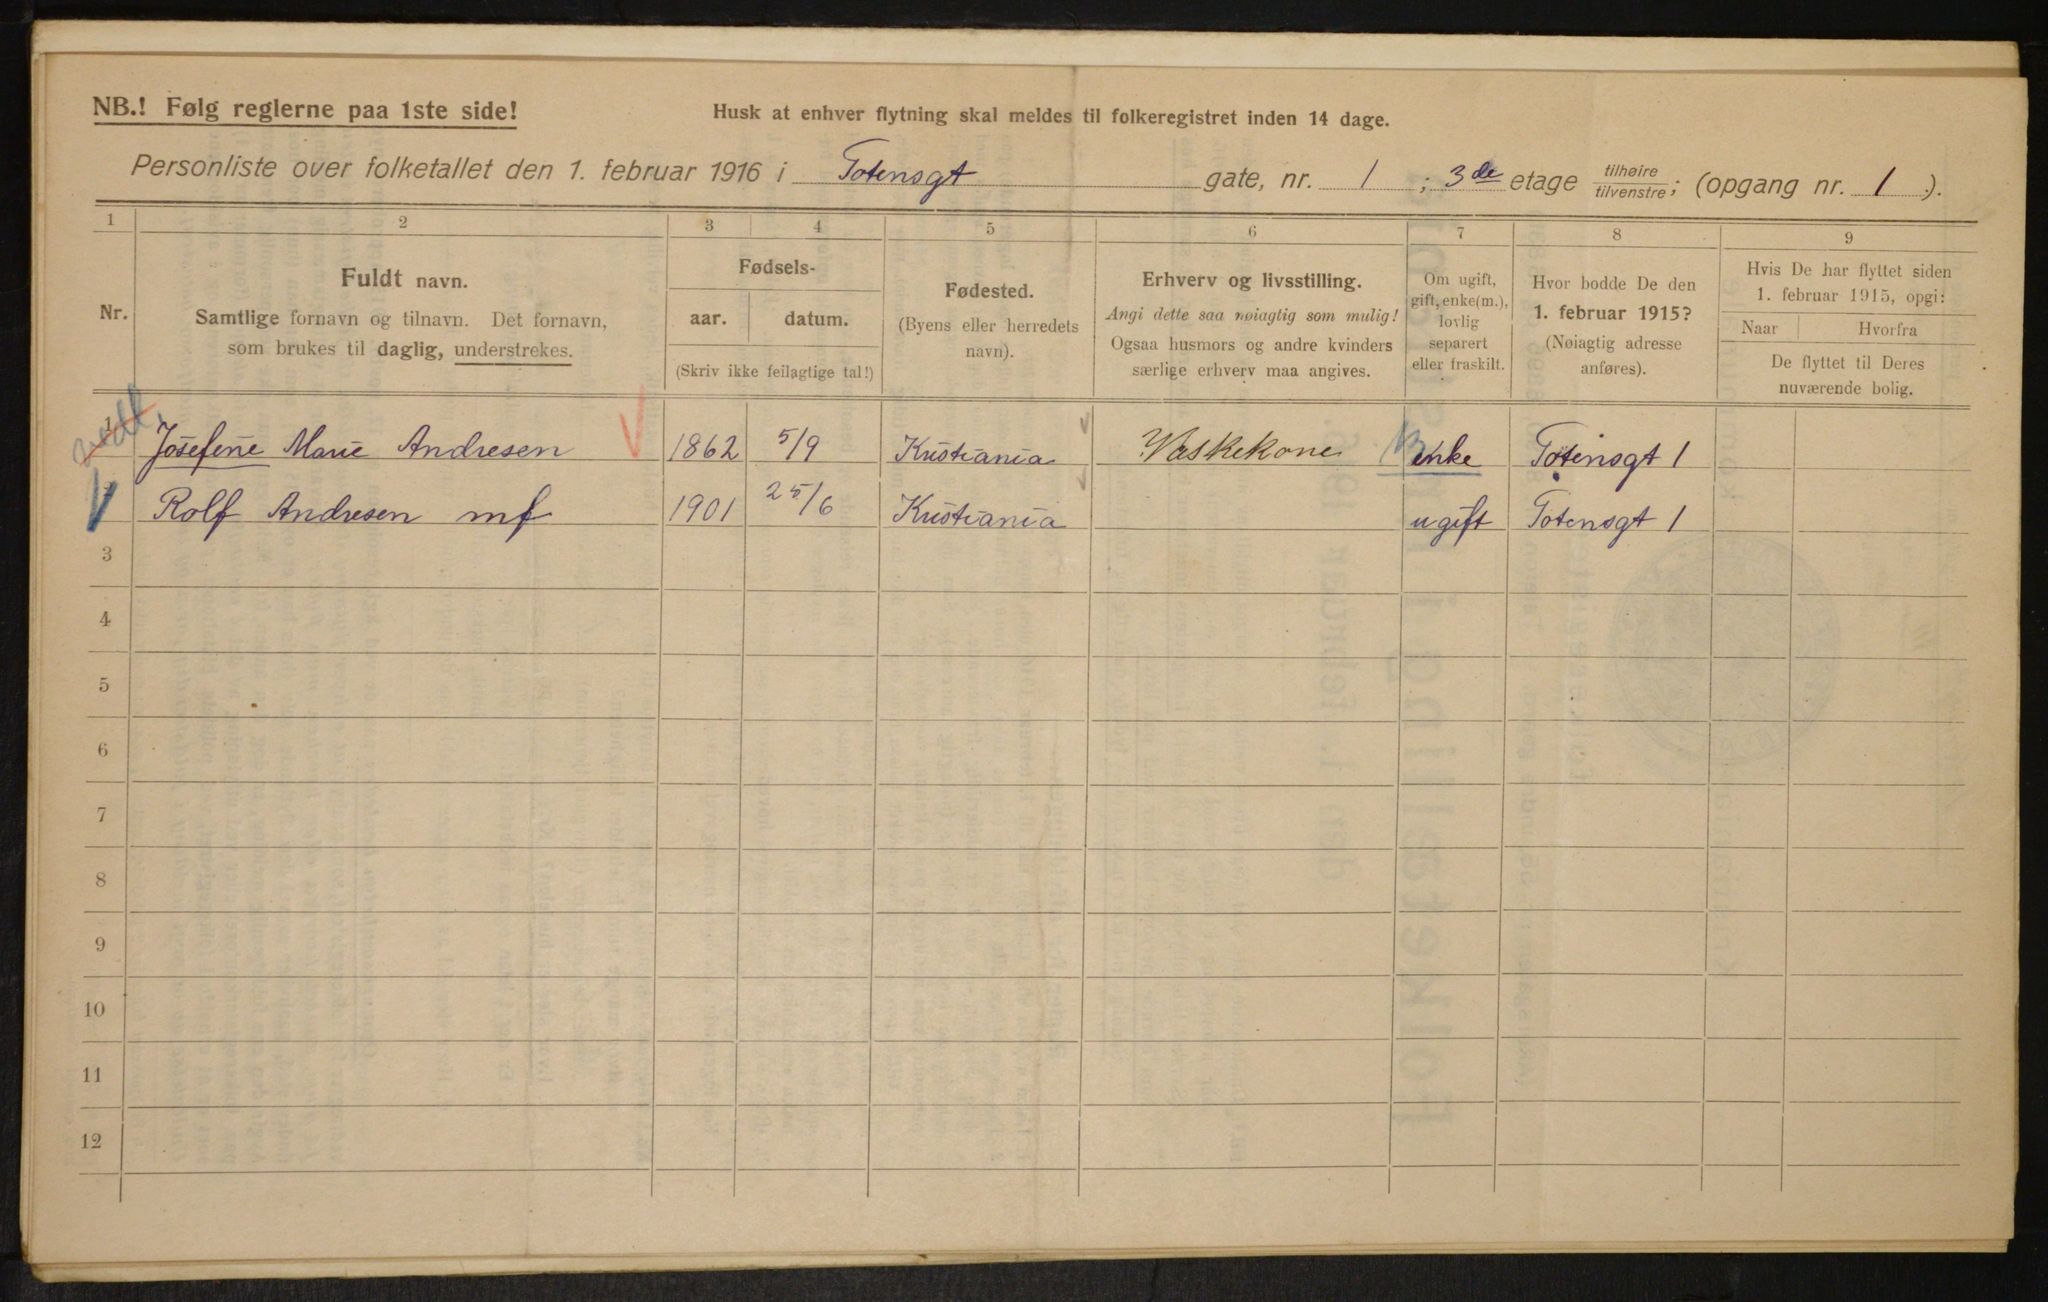 NB.! Følg reglerne paa 1ste side!
Husk at enhver flytning skal meldes til folkeregistret inden 14 dage.
Personliste over folketallet den 1. februar 1916 i Totensgt gate, nr. 1 ; 3de etage tilhøire tilvenstre; (opgang nr. 1 ).
1 2 3 4 5 6 7 8 9
Nr.
Fuldt navn.
Samtlige fornavn og tilnavn. Det fornavn,
som brukes til daglig, understrekes.
Fødsels-
aar. datum.
(Skriv ikke feilagtige tal!)
Fødested.
(Byens eller herredets
navn).
Erhverv og livsstilling.
Angi dette saa nøiagtig som mulig!
Ogsaa husmors og andre kvinders
særlige erhverv maa angives.
Om ugift,
gift, enke(m.),
lovlig
separert
eller fraskilt.
Hvor bodde De den
1. februar 1915?
(Nøiagtig adresse
anføres).
Hvis De har flyttet siden
1. februar 1915, opgi:
Naar Hvorfra
De flyttet til Deres
nuværende bolig.
1 Josefene Marie Andresen 1862 5/9 Kristiania Vaskekone enke Totensgt 1
Rolf Andresen mf 1901 25/6 Kristiania ugift Totensgt 1
3
4
5
6
7
8
9
10
11
12